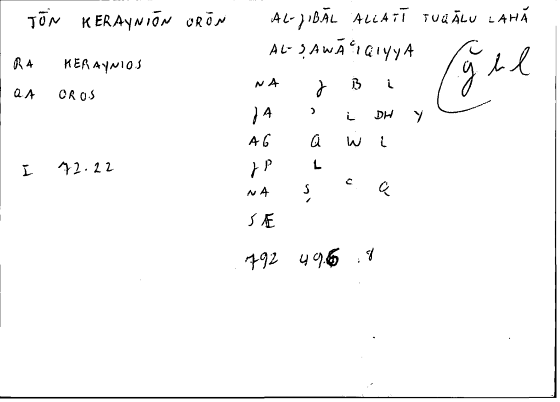 TŌN KERAYNIŌN ORŌN
RA KERAYNIOS
QA OROS
I 72.22
AL-JIBĀL ALLATĪ TUQĀLU LAHĀ
AL-ṢAWĀʿIQIYYA
NA J B L
JA ʾ L DH Y
AG Q W L
JP L
NA Ṣ ʿ Q
SÆ
792 496 .8
ǧ b l